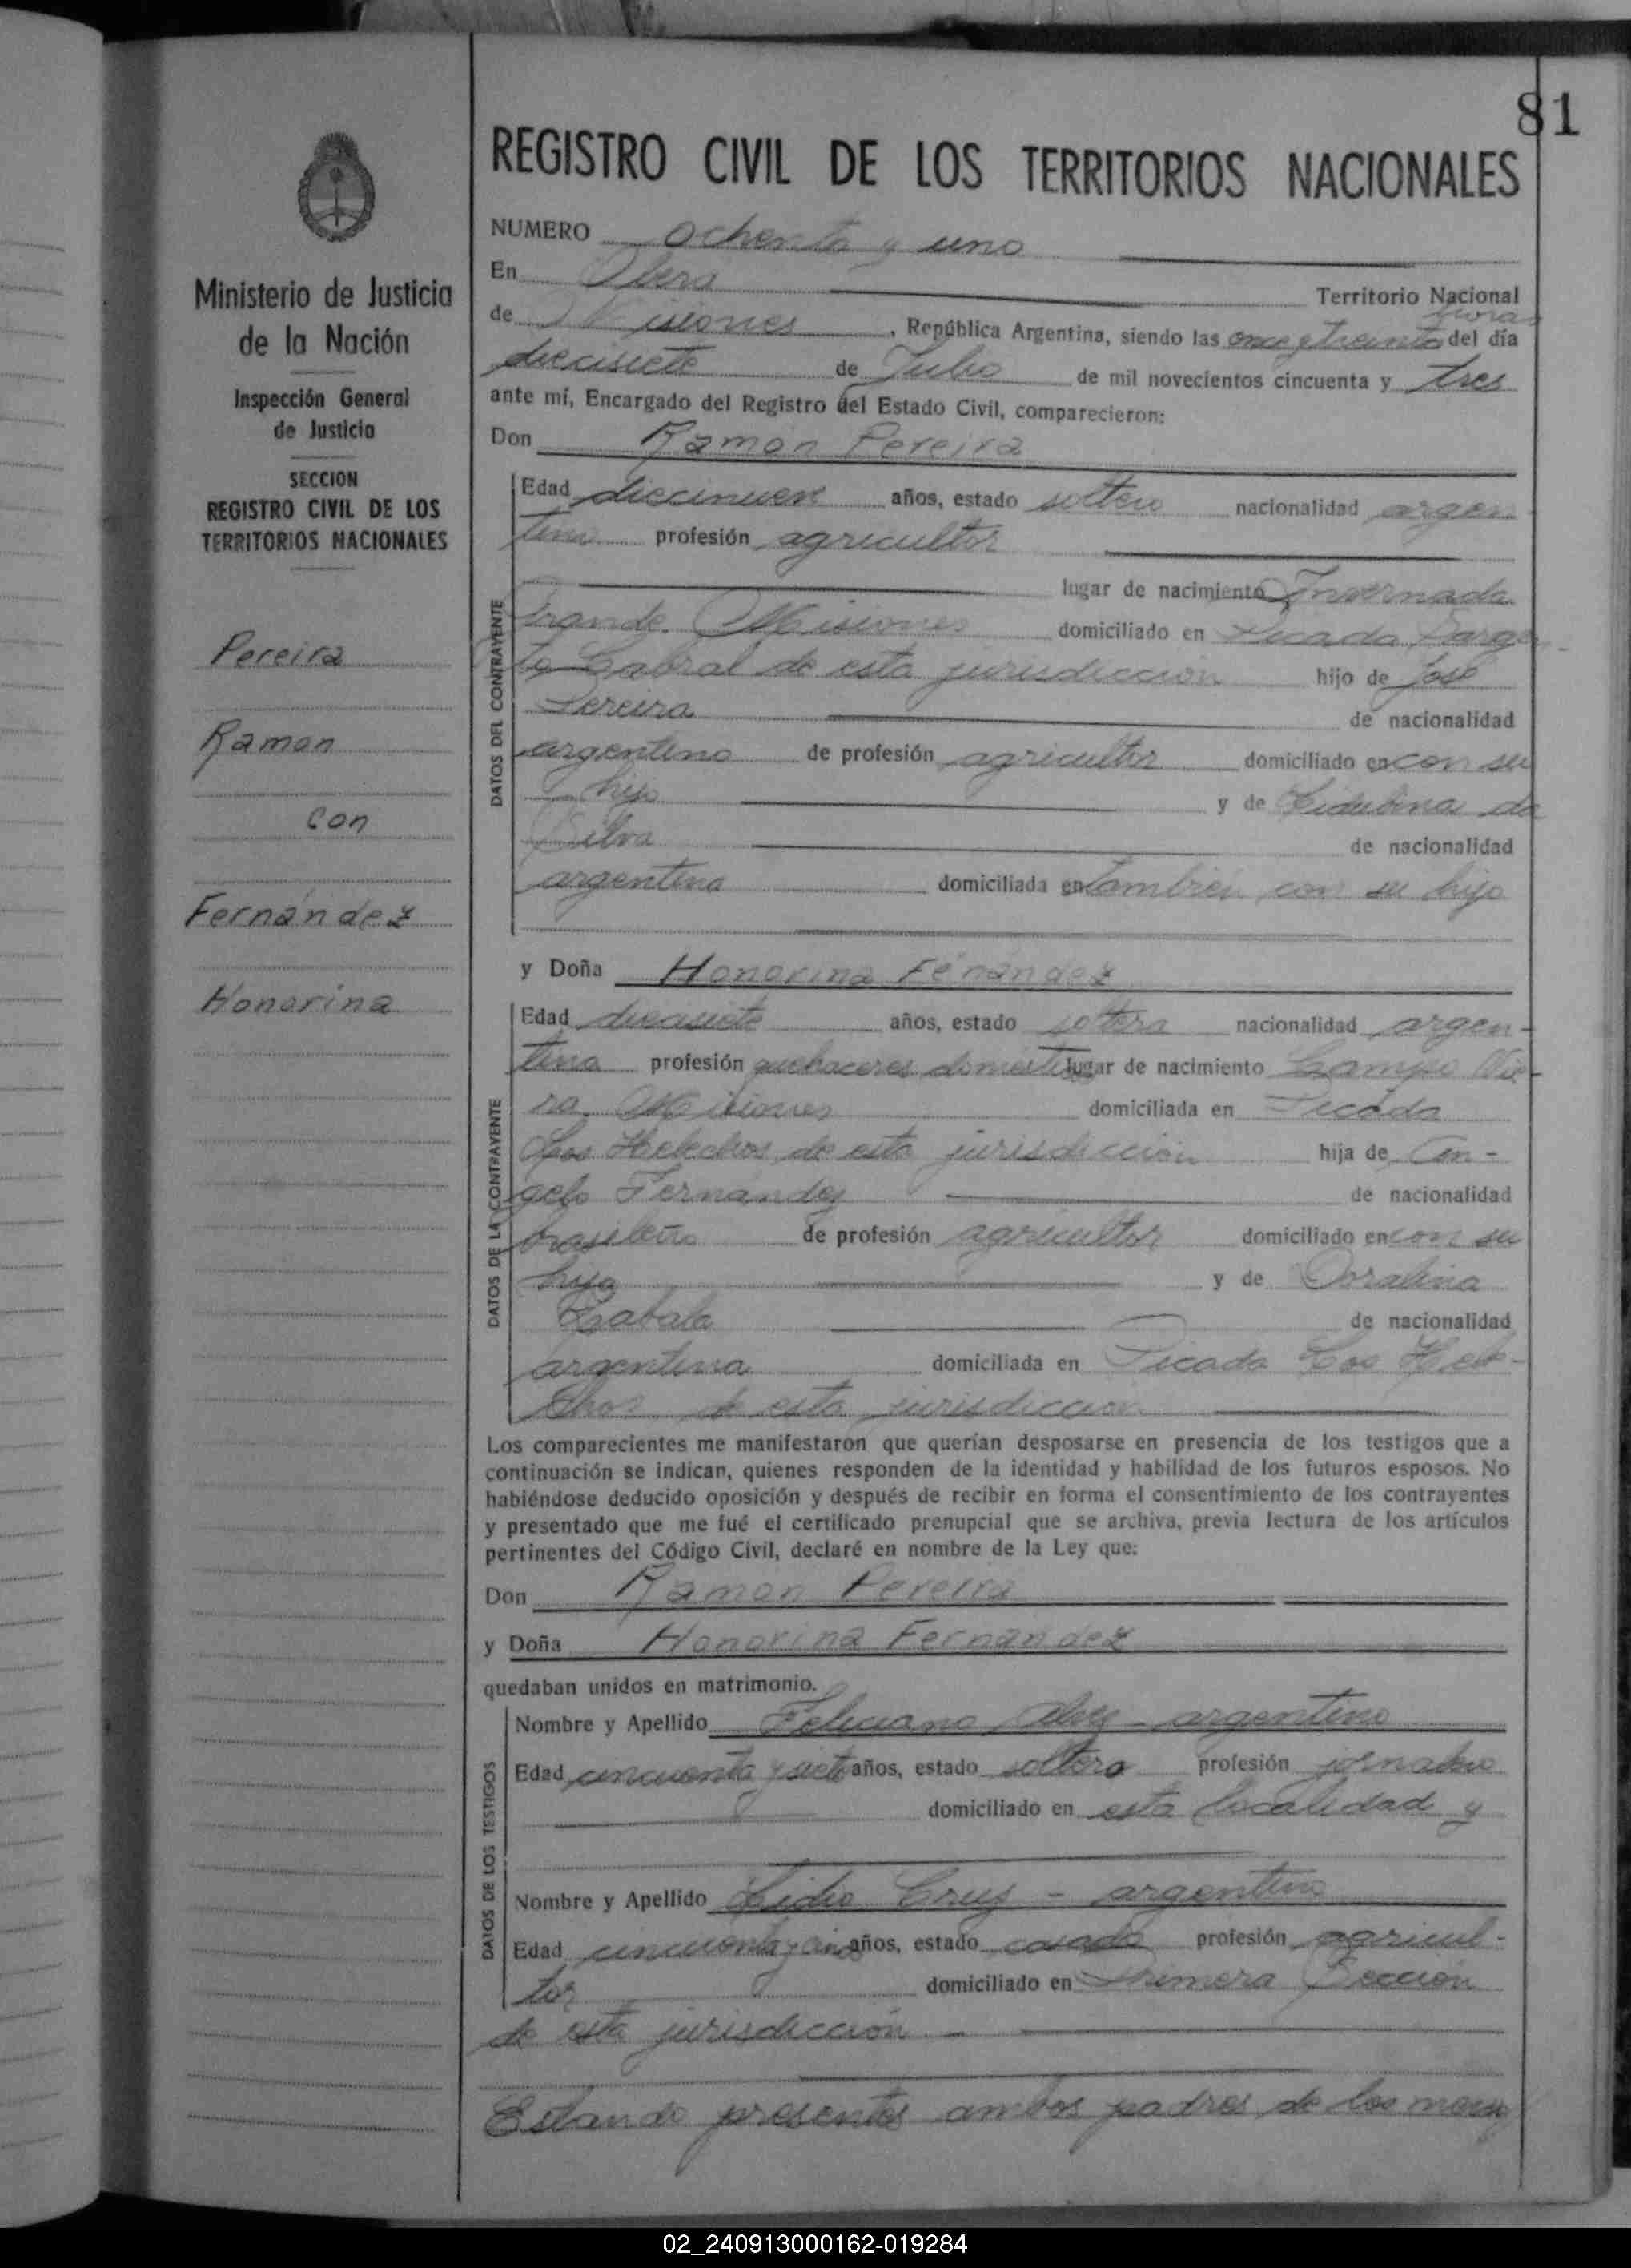 81
REGISTRO CIVIL DE LOS TERRITORIOS NACIONALES
Ministerio de Justicia
de la Nación
Inspección General
de Justicia
SECCION
REGISTRO CIVIL DE LOS
TERRITORIOS NACIONALES
Pereira
Ramon
con
Fernández
Honorina
NUMERO ochenta y uno
En Obera Territorio Nacional
horas
de Misiones, República Argentina, siendo las once y treinta del día
diecisiete de Julio de mil novecientos cincuenta y tres
ante mí, Encargado del Registro del Estado Civil, comparecieron:
Don Ramon Pereira
DATOS DEL CONTRAYENTE
Edad diecinueve años, estado soltero nacionalidad argen
tino profesión agricultor
lugar de nacimiento Invernada
Grande. Misiones domiciliado en Picada Sargen-
to Cabral de esta jurisdicción hijo de José
Pereira de nacionalidad
argentino de profesión agricultor domiciliado en con su
hijo y de da
Silva de nacionalidad
argentina domiciliada en también con su hijo
y Doña Honorina Fernández
DATOS DE LA CONTRAYENTE
Edad diecisiete años, estado soltera nacionalidad argen-
tina profesión quehaceres domésticos lugar de nacimiento Campo Vie-
ra. Misiones domiciliada en Picada
Los Helechos de esta jurisdicción hija de An-
gelo Fernández de nacionalidad
brasileño de profesión agricultor domiciliado en con su
hija y de Doralina
Zabala de nacionalidad
argentina domiciliada en Picada Los Hele-
chos de esta jurisdicción
Los comparecientes me manifestaron que querían desposarse en presencia de los testigos que a
continuación se indican, quienes responden de la identidad y habilidad de los futuros esposos. No
habiéndose deducido oposición y después de recibir en forma el consentimiento de los contrayentes
y presentado que me fué el certificado prenupcial que se archiva, previa lectura de los artículos
pertinentes del Código Civil, declaré en nombre de la Ley que:
Don Ramon Pereira
y Doña Honorina Fernandez
quedaban unidos en matrimonio.
DATOS DE LOS TESTIGOS
Nombre y Apellido Feliciano - argentino
Edad cincuenta y siete años, estado soltero profesión jornalero
domiciliado en esta localidad y
Nombre y Apellido Lidio Cruz - argentino
Edad cincuenta y cinco años, estado casado profesión agricul-
tor domiciliado en Primera Sección
de esta jurisdicción
Estando presentes ambos padres de los
02_240913000162-019284